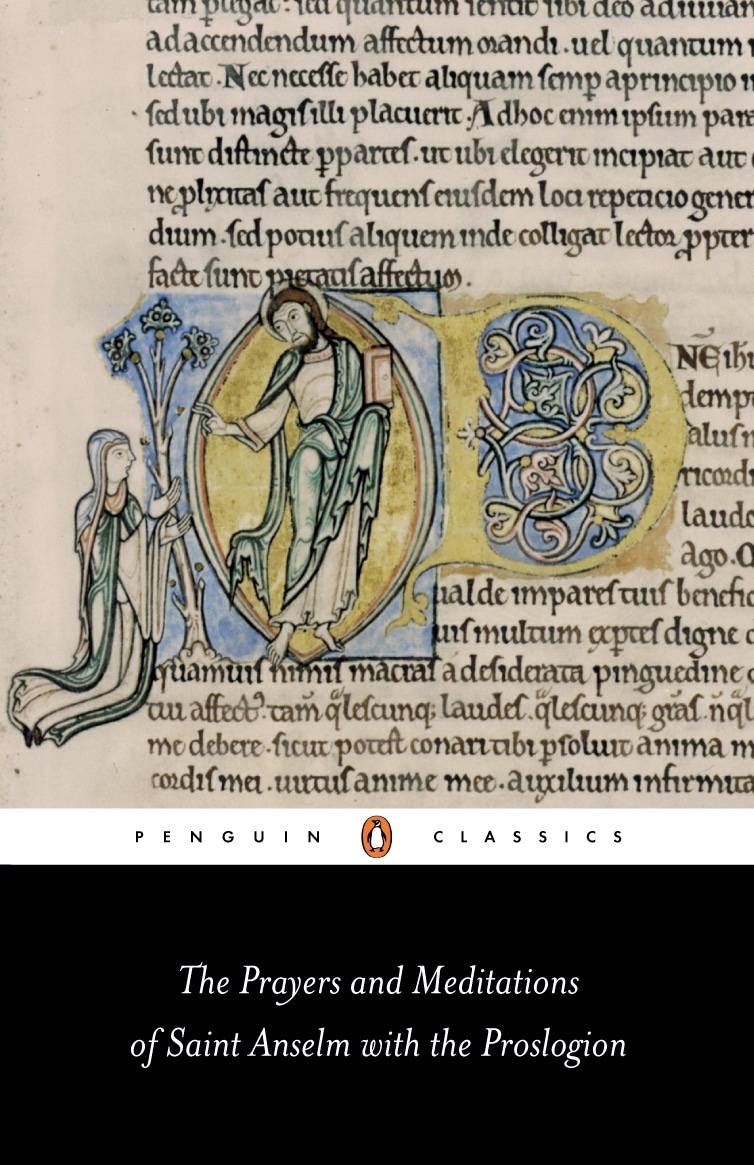 adaccendendum affectum orandi . uel quantum
lectat . Nec necesse habet aliquam semp aprincipio
sed ubi magis illi placuerit . Adhoc enim ipsum
sunt distincte ꝑpartes . ut ubi elegerit incipiat aut
ne ꝓlixitas aut frequens eiusdem loci repeticio
dium . sed potius aliquem inde colligat lector ꝓpter
facte sunt pietatis affectum .
NE
laudo
ago . O
ualde impares tuis
uis multum exptes digne
quamuis nimis macras a desiderata pinguedine
tui affectꝰ . tam̄ q̄lescunq; laudes . q̄lescunq; grās .
me debere . sicut potest conari tibi ꝑsoluit anima
cordis mei . uirtus anime mee . auxilium
PENGUIN CLASSICS
The Prayers and Meditations
of Saint Anselm with the Proslogion